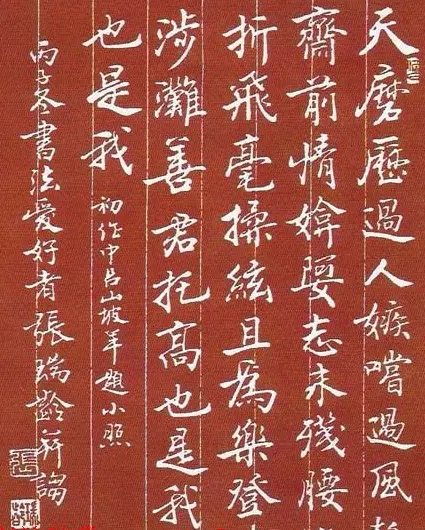 天磨歷過人嫉嚐過風
齋前情婞志未殘腰
折飛毫操絃且為樂登
涉灘善君托高也是我
也是我
初作中呂山坡羊題小照
丙子冬書法愛好者張瑞齡并謅